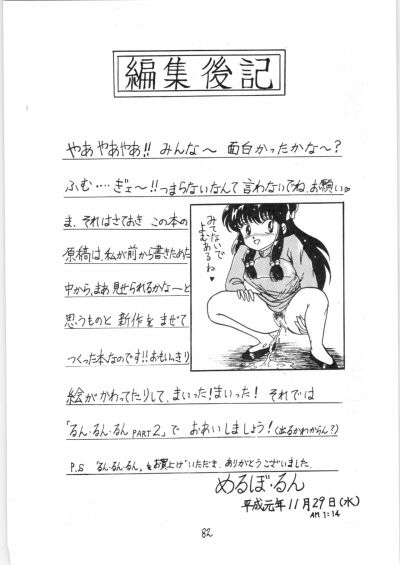 編集後記
やあ やあやあ!! みんな〜 面白かったかな〜?
ふむ‥‥ぎェ〜!!つまらないなんて言わないでね、お願い。
ま、それはさておき この本の
原稿は、私が前から書きためた
中から、まあ 見せられるかな〜と
思うものと 新作を まぜて
つくった本なのです!!おもいっきり
絵がかわってたりして、まいった!まいった! それでは
「るん・るん・るん PART 2」で おあいしましょう!(出るかわからん?)
P.S 「るん・るん・るん」をお買上げいただき、ありがとうございました。
めるぼ・るん
平成元年11月29日(水)
AM 1:14
みてないで
よむあるね♥
82